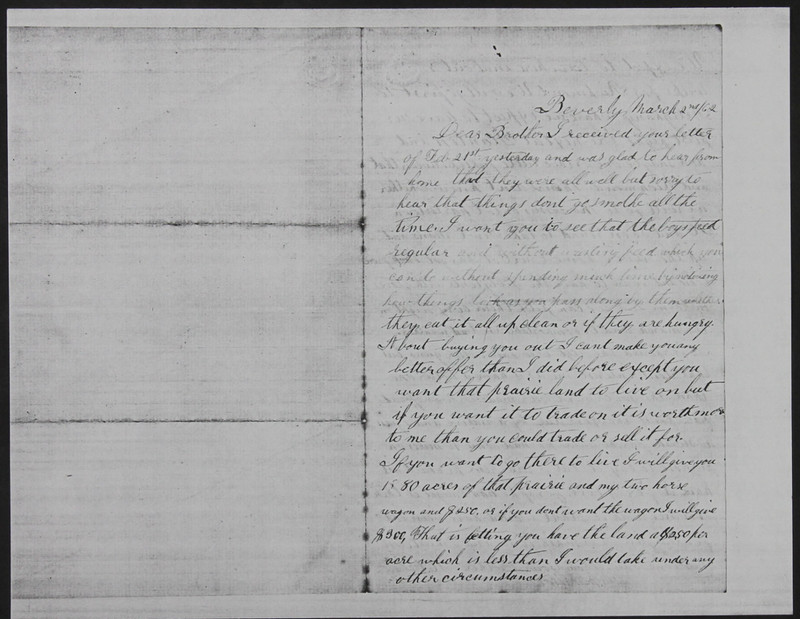 Beverly March 2nd/62
Dear Brother I received your letter
of Feb 21st yesterday and was glad to hear from
home that they were all well but sorry to
hear that things dont go smothe all the
time. I want you to see that the boys feed
regular and without wasting feed which you
can do without spending much time by noticing
how things look as you pass along by them
they eat it all up clean or if they are hungry.
About buying you out I cant make you any
better offer than I did before except you
want that prairie land to live on but
if you want it to trade on it is worth more
to me than you could trade or sell it for.
If you want to go there to live I will give you
80 acres of that prairie and my two horse
wagon and $250, or if you dont want the wagon I will give
$300, That is letting you have the land at $250 per
acre which is less than I would take under any
other circumstances